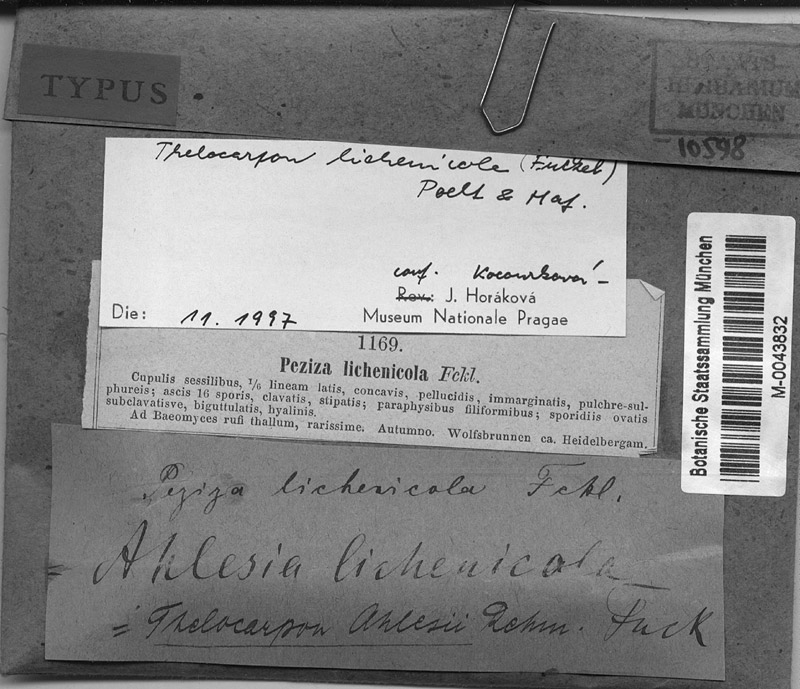 TYPUS
STAATS
HERBARIUM
MÜNCHEN
10598
Thelocarpon lichenicola (Fuckel)
Poelt & Haf.
conf. Kocourková
Rev.: J. Horáková
Die: 11. 1997
Museum Nationale Pragae
1169.
Peziza lichenicola Fckl.
Cupulis sessilibus, 1/6 lineam latis, concavis, pellucidis, immarginatis, pulchre-sul-
phureis; ascis 16 sporis, clavatis, stipatis; paraphysibus filiformibus; sporidiis ovatis
subclavatisve, biguttulatis, hyalinis.
Ad Baeomyces rufi thallum, rarissime. Autumno. Wolfsbrunnen ca. Heidelbergam.
Peziza lichenicola Fckl.
= Ahlesia lichenicola
Fuck
= Thelocarpon Ahlesii Rehm.
Botanische Staatssammlung München
M-0043832